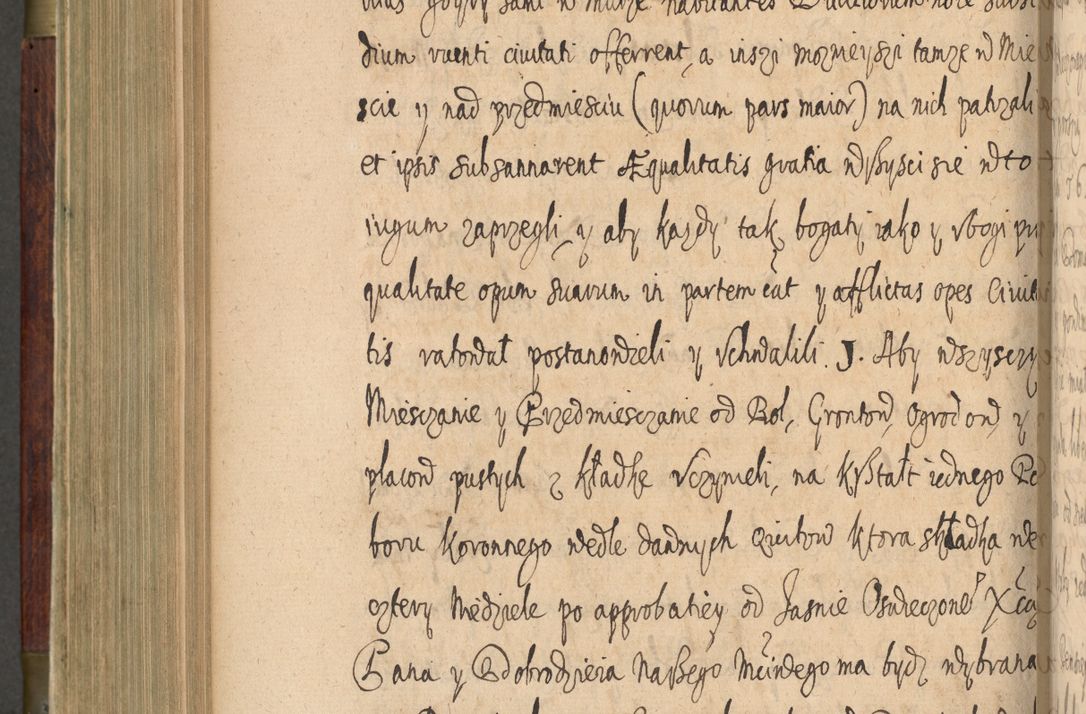 dium ruenti ciuitati offerrent, a inszi moznieyszi tamze w Mie
scie y nad przedmiesciu (quorum pars maior) na nich patrzali
et ipsis subsannarent Æqualitatis gratia wszysci sie w to
iugum zaprzegli, y aby kazdy tak bogaty iako y vbogi pro
qualitate opum suarum in partem cat y afflictas opes Ciuita
tis ratował postanowieli y vchwalili. J. Aby wszysczy
Miesczanie y Przedmiesczanie od Rol, Grontow, Ogrodow, y
placow pustych z kładkę vczynieli, na kształt iednego Po
boru koronnego wedle dawnych quitow ktora składka we
cztery Niedziele po approbatiey od Jasnie Oswieczone° Xcia
Pana y Dobrodzieia Naszego Mciwego ma bydz wybrana